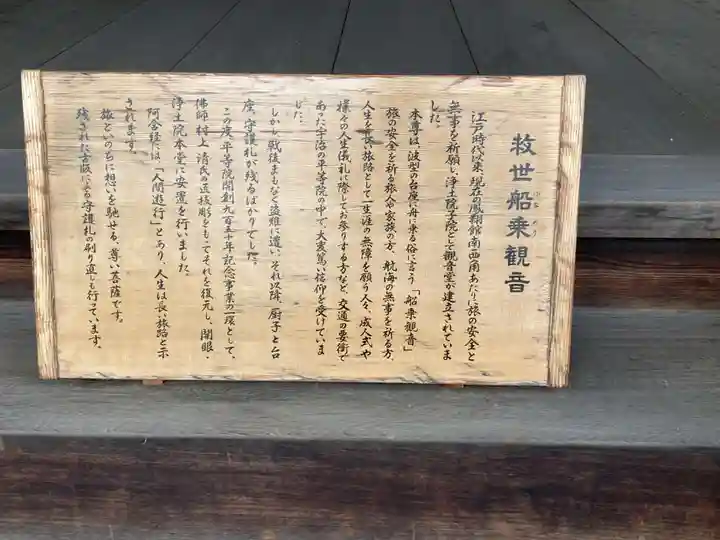 救世船乗観音
ふな のり
江戸時代以来、現在の鳳翔館南西角あたりに旅の安全と
無事を祈願し、浄土院子院として観音堂が建立されていま
した。
本尊は、波型の台座に舟に乗る俗に言う「船乗観音」
旅の安全を祈る旅人や家族の方、航海の無事を祈る方、
人生を長い旅路として一生涯の無障を願う人々、成人式や
様々の人生儀礼に際してお参りする方など、交通の要衝で
あった宇治の平等院の中で、大変篤い信仰を受けていま
した。
しかし戦後まもなく盗難に遭い、それ以降、厨子と台
座、守護札が残るばかりでした。
この度、平等院開創九百五十年記念事業の一環として、
佛師村上清氏の直枝彫をもってそれを復元し、開眼・
浄土院本堂に安置を行いました。
阿含経には、「人間遊行」とあり、人生は長い旅路と示
されます。
旅といのちに想いを馳せる、尊い菩薩です。
残された古版による守護札の刷り直しも行っています。